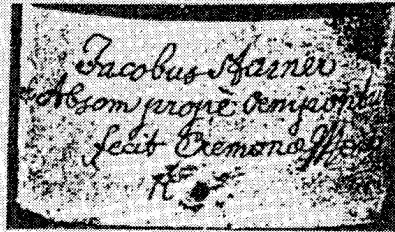 Jacobus Stainer
Absom prope Oenipontu
fecit Cremonæ